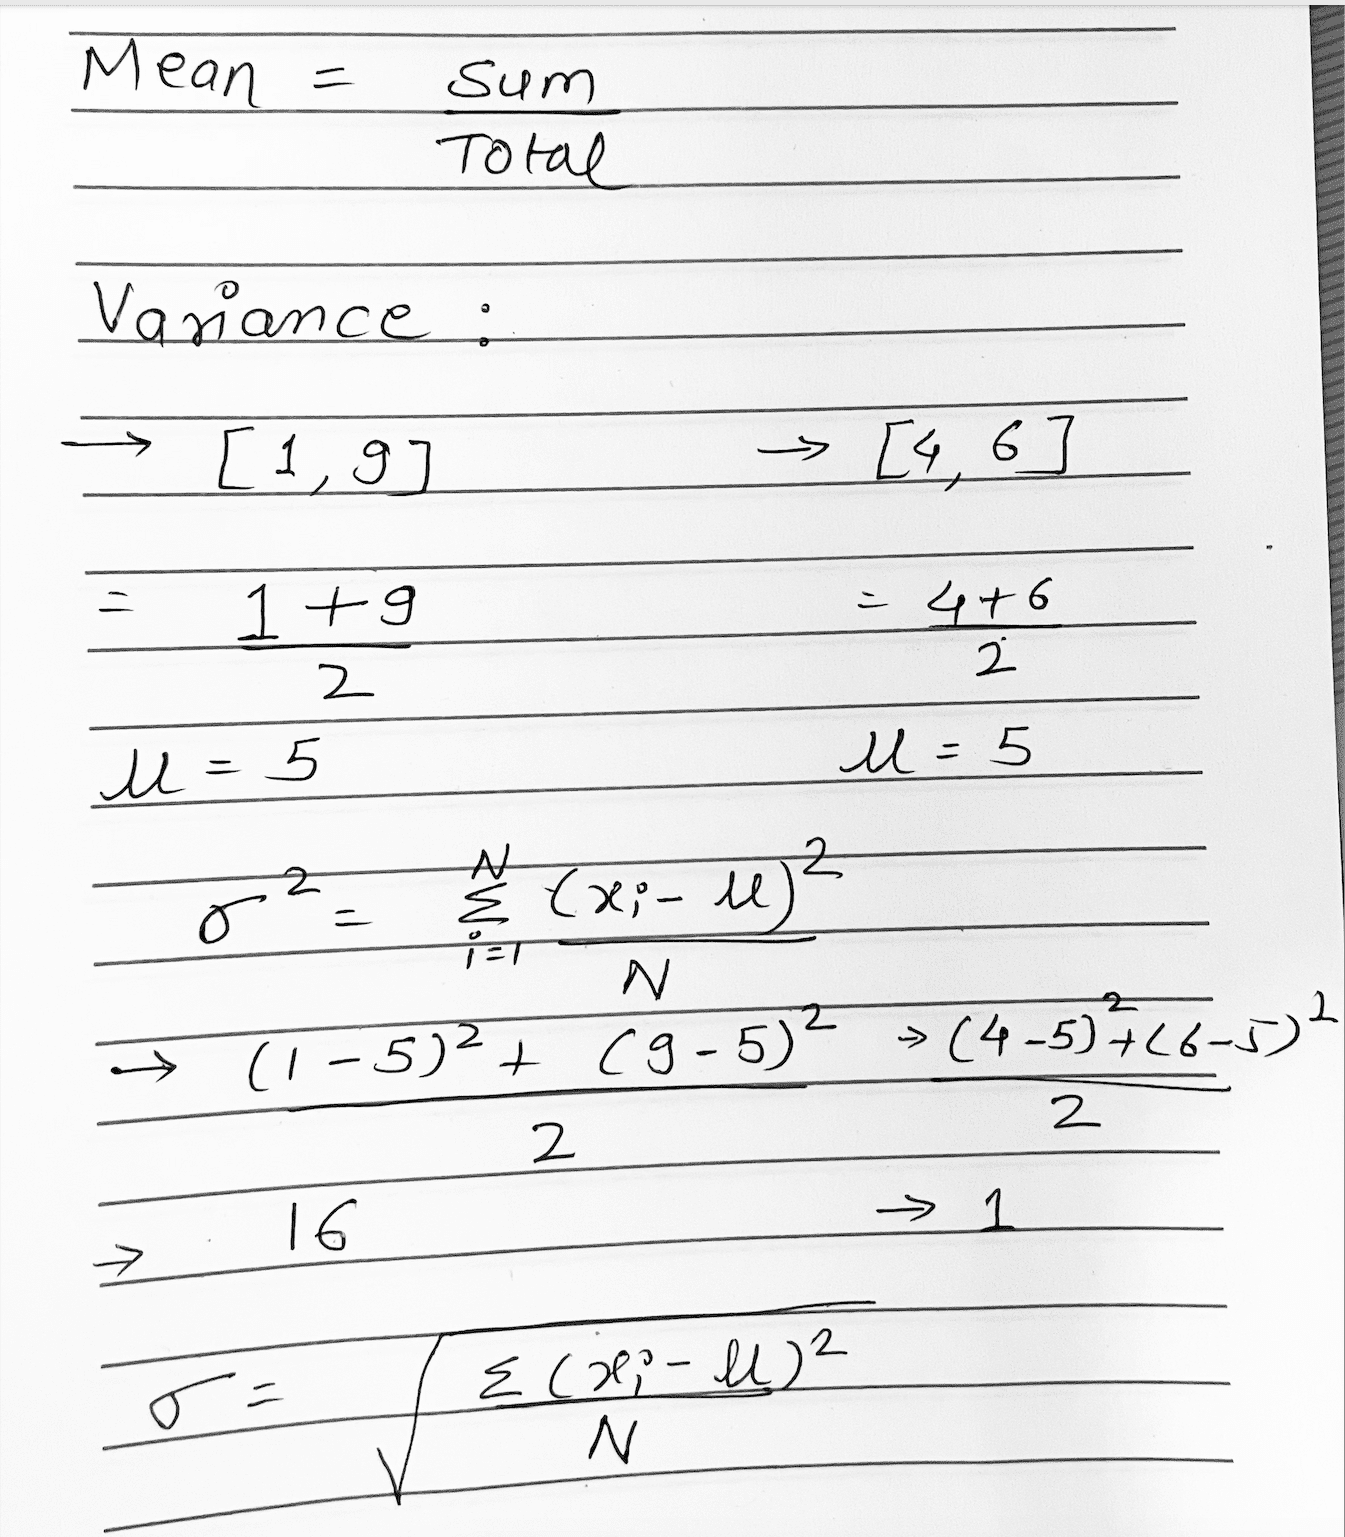 Mean = Sum
Total
Variance :
→ [1, 9] → [4, 6]
= 1 + 9 = 4+6
2 2
μ = 5 μ = 5
σ² = N Σ i=1 (xi - μ)²
N
→ (1 - 5)² + (9 - 5)² → (4-5)²+(6-5)²
2 2
→ 16 → 1
σ = √ Σ (xi - μ)²
N